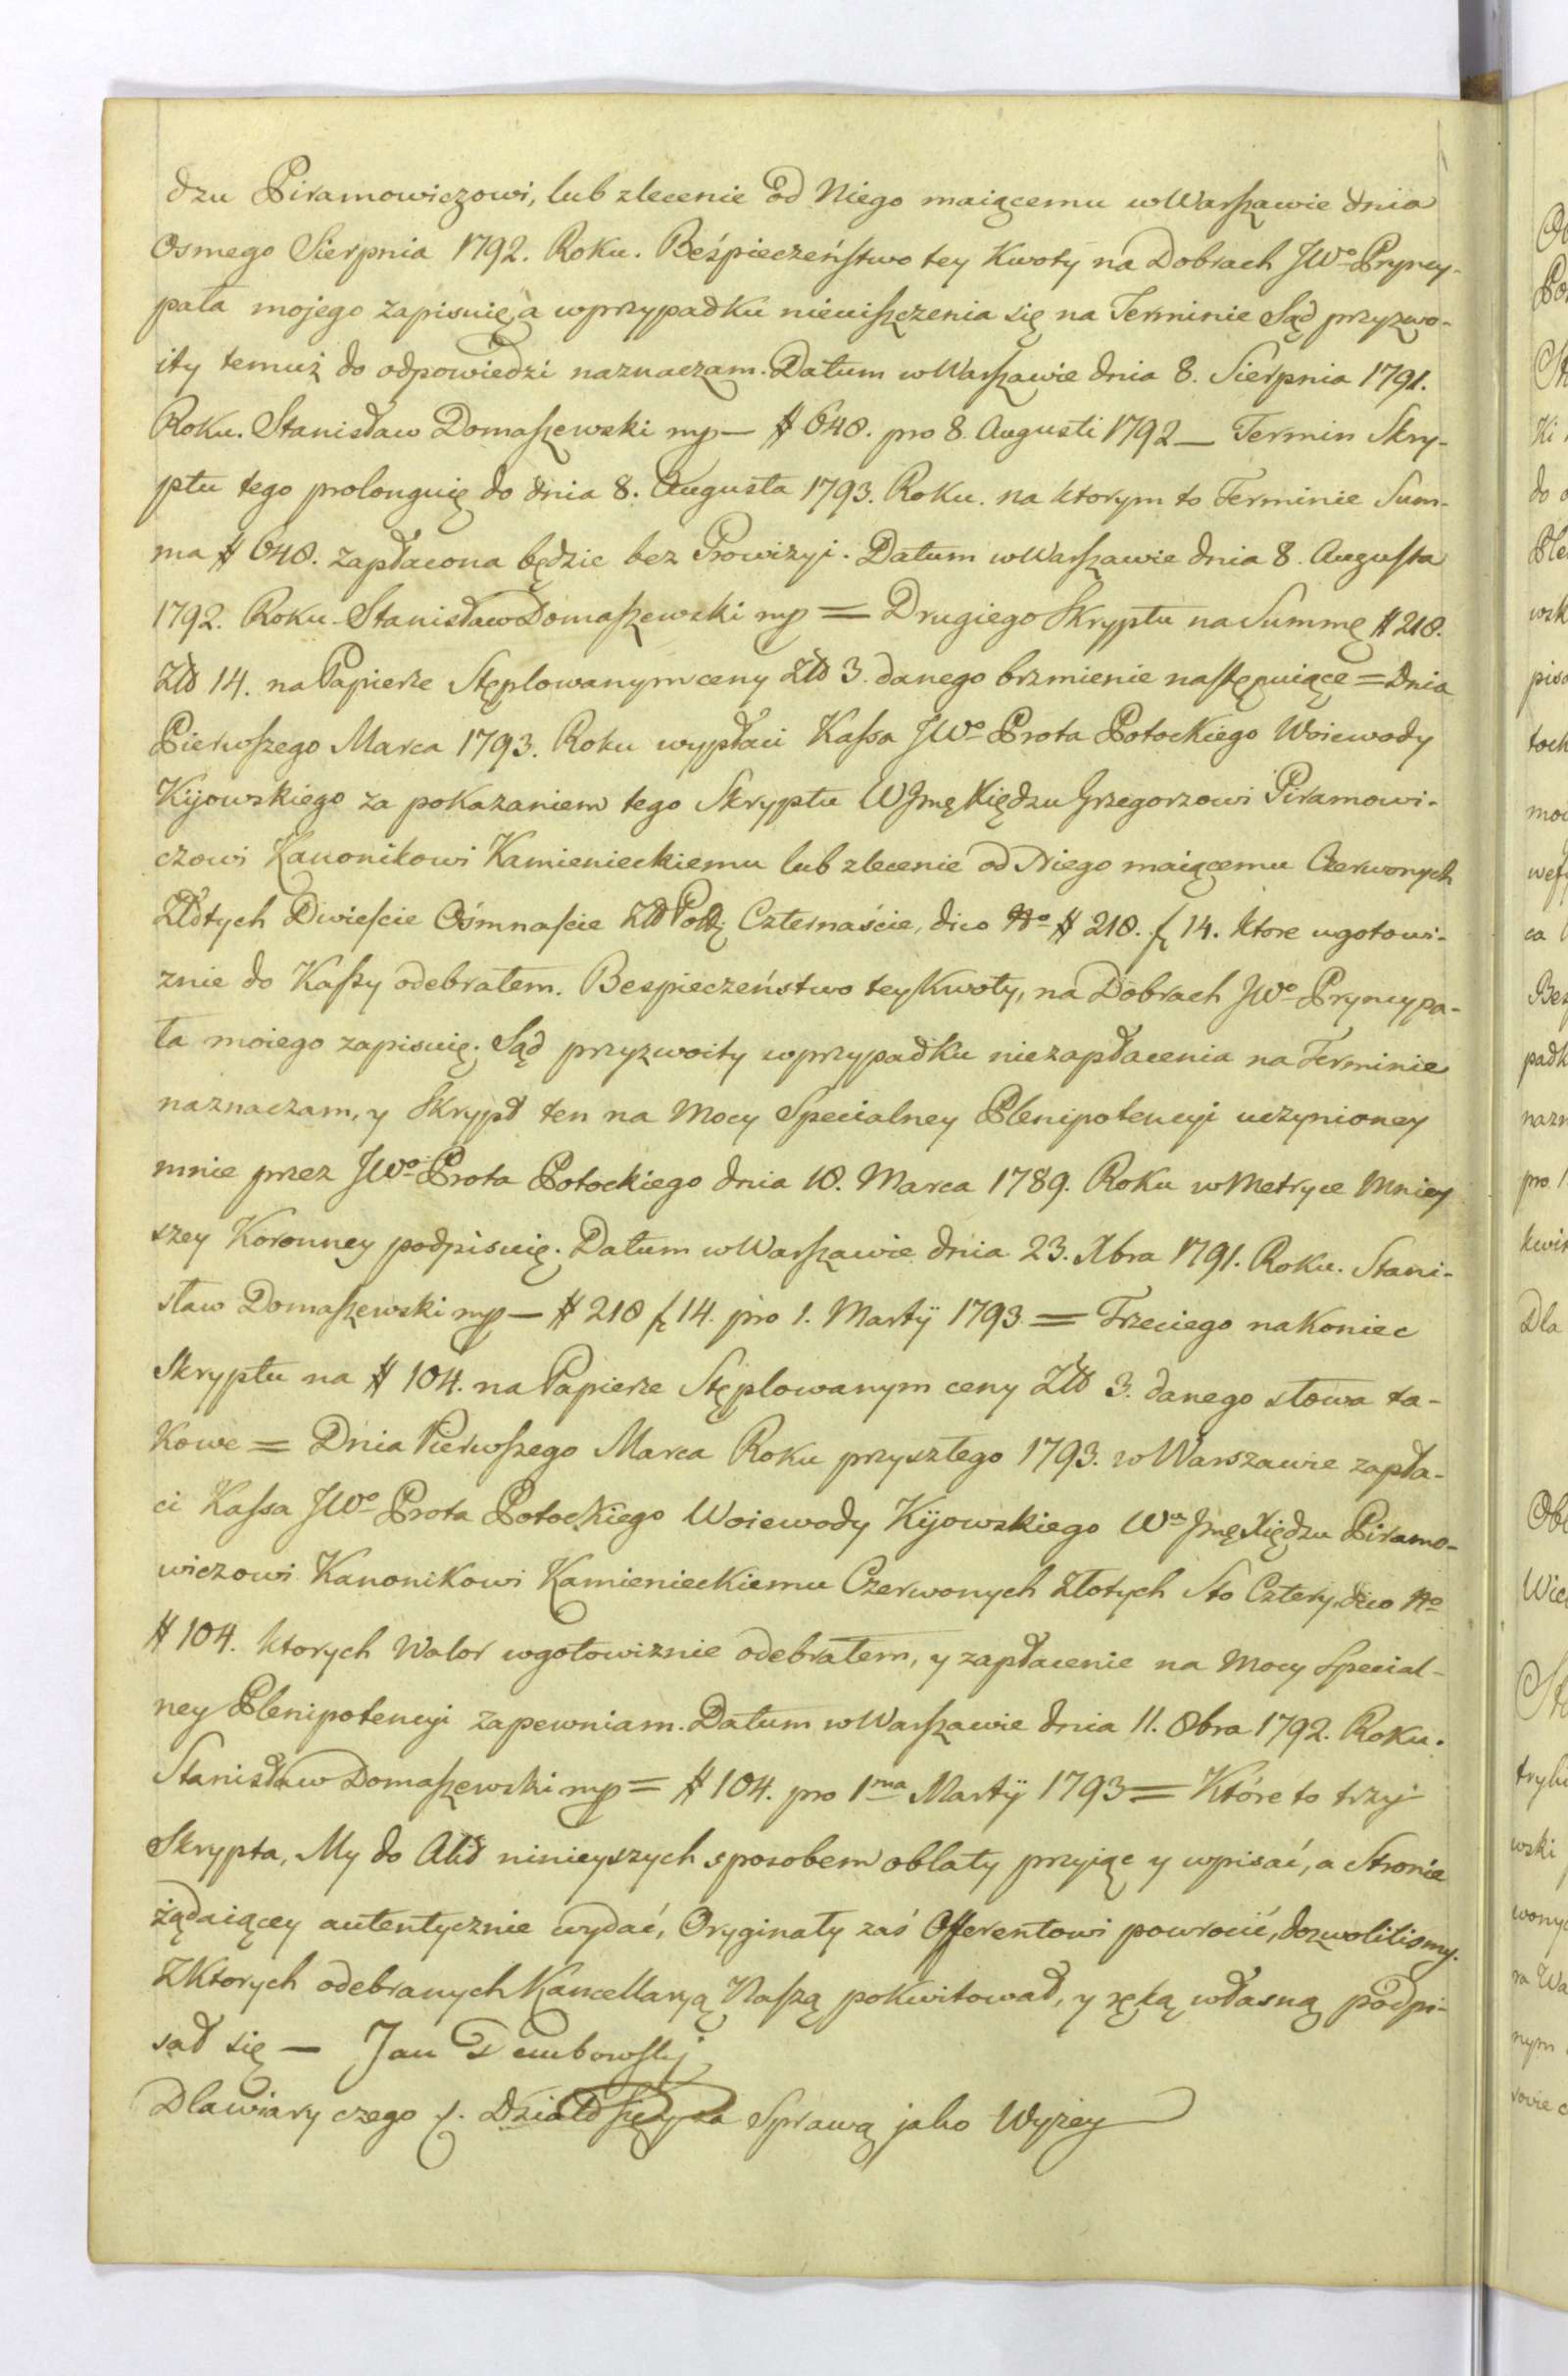 dzu Piramowiczowi, lub zlecenie od Niego maiącemu w Warszawie dnia
Osmego Sierpnia 1792. Roku. Beśpieczeństwo tey Kwoty na Dobrach JWo Pryncy-
pała mojego zapisuię, a w przypadku nieuiszczenia się na Terminie Sąd przyzwo-
ity temuż do odpowiedzi naznaczam. Datum w Warszawie dnia 8. Sierpnia 1791.
Roku. Stanisław Domaszewski mp — # 648. pro 8 Augusti 1792 — Termin Skry-
ptu tego prolonguię do dnia 8. Augusta 1793. Roku. na ktorym to Terminie Sum-
ma # 648. zapłacona będzie bez Prowizyi. Datum w Warszawie dnia 8. Augusta
1792. Roku Stanisław Domaszewski mp = Drugiego Skryptu na Summę # 218.
Złł 14. na Papierze Stęplowanym ceny Złł 3. danego brzmienie następuiące = Dnia
Pierwszego Marca 1793. Roku wypłaci Kassa JWo Prota Potockiego Woiewody
Kijowskiego za pokazaniem tego Skryptu WJmę Xiędzu Grzegorzowi Piramowi-
czowi Kanonikowi Kamienieckiemu lub zlecenie od Niego maiącemu Czerwonych
Złłotych Dwieście Ośmnaście Złł Polł; Czternaście, dico No # 218. f 14. ktore w gotowi-
znie do Kassy odebrałem. Bespieczeństwo tey Kwoty, na Dobrach JWo Pryncypa-
ła moiego zapisuię; Sąd przyzwoity w przypadku niezapłacenia na Terminie
naznaczam, y Skrypt ten na Mocy Specialney Plenipotencyi uczynioney
mnie przez JWo Prota Potockiego dnia 18. Marca 1789. Roku w Metryce Mniey
szey Koronney podpisuię. Datum w Warszawie dnia 23. Xbra 1791. Roku. Stani-
sław Domaszewski mp — # 218 f 14. pro 1. Martÿ 1793 = Trzeciego nakoniec
Skryptu na # 104. na Papierze Stęplowanym ceny Złł 3. danego słowa ta-
kowe = Dnia Pierwszego Marca Roku przyszłego 1793. w Warszawie zapła-
ci Kassa JWo Prota Potockiego Woiewody Kijowskiego Wu Jmę Xiędzu Piramo-
wiczowi Kanonikowi Kamienieckiemu Czerwonych Złotych Sto Cztery, dico No
# 104. ktorych Walor w gotowiznie odebrałem, y zapłacenie na Mocy Special-
ney Plenipotencyi zapewniam. Datum w Warszawie dnia 11. 8bra 1792. Roku.
Stanisław Domaszewski mp = # 104. pro 1ma Martÿ 1793 = Które to trzy
Skrypta, My do Akt ninieyszych sposobem oblaty przyiąć y wpisać, a Stronie
żądaiącey autentycznie wydać, Oryginały zaś Offerentowi powrocić, dozwoliliśmy.
Z ktorych odebranych Kancellaryą Naszą pokwitował, y ręką własną podpi-
sał się — Jan Dembowskj
Dla wiary czego f. Działo się y za Sprawą jako Wyżey